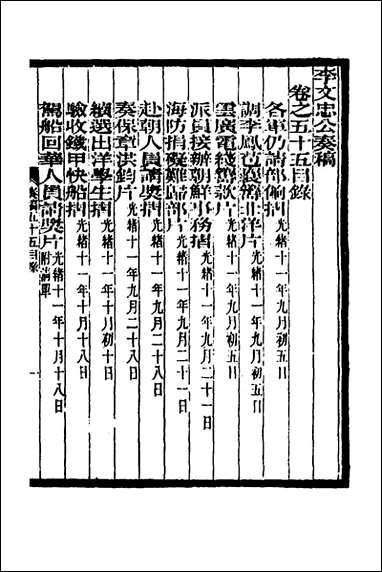 李文忠公奏稿
卷之五十五目錄
各軍仍請部餉摺 光緒十一年九月初五日
調李鳳苞來津片 光緒十一年九月初五日
雲廣電綫籌款片 光緒十一年九月初五日
派員接辦朝鮮事務摺 光緒十一年九月二十一日
海防捐礙難歸部片 光緒十一年九月二十一日
赴朝人員請獎摺 光緒十一年九月二十二日
奏保章洪鈞片
續選出洋學生摺 光緒十一年十月初十日
驗收鐵甲快船摺 光緒十一年十月十八日
駕船回華人員請獎片 附清單 光緒十一年十月十八日
奏稿五十五目錄
一